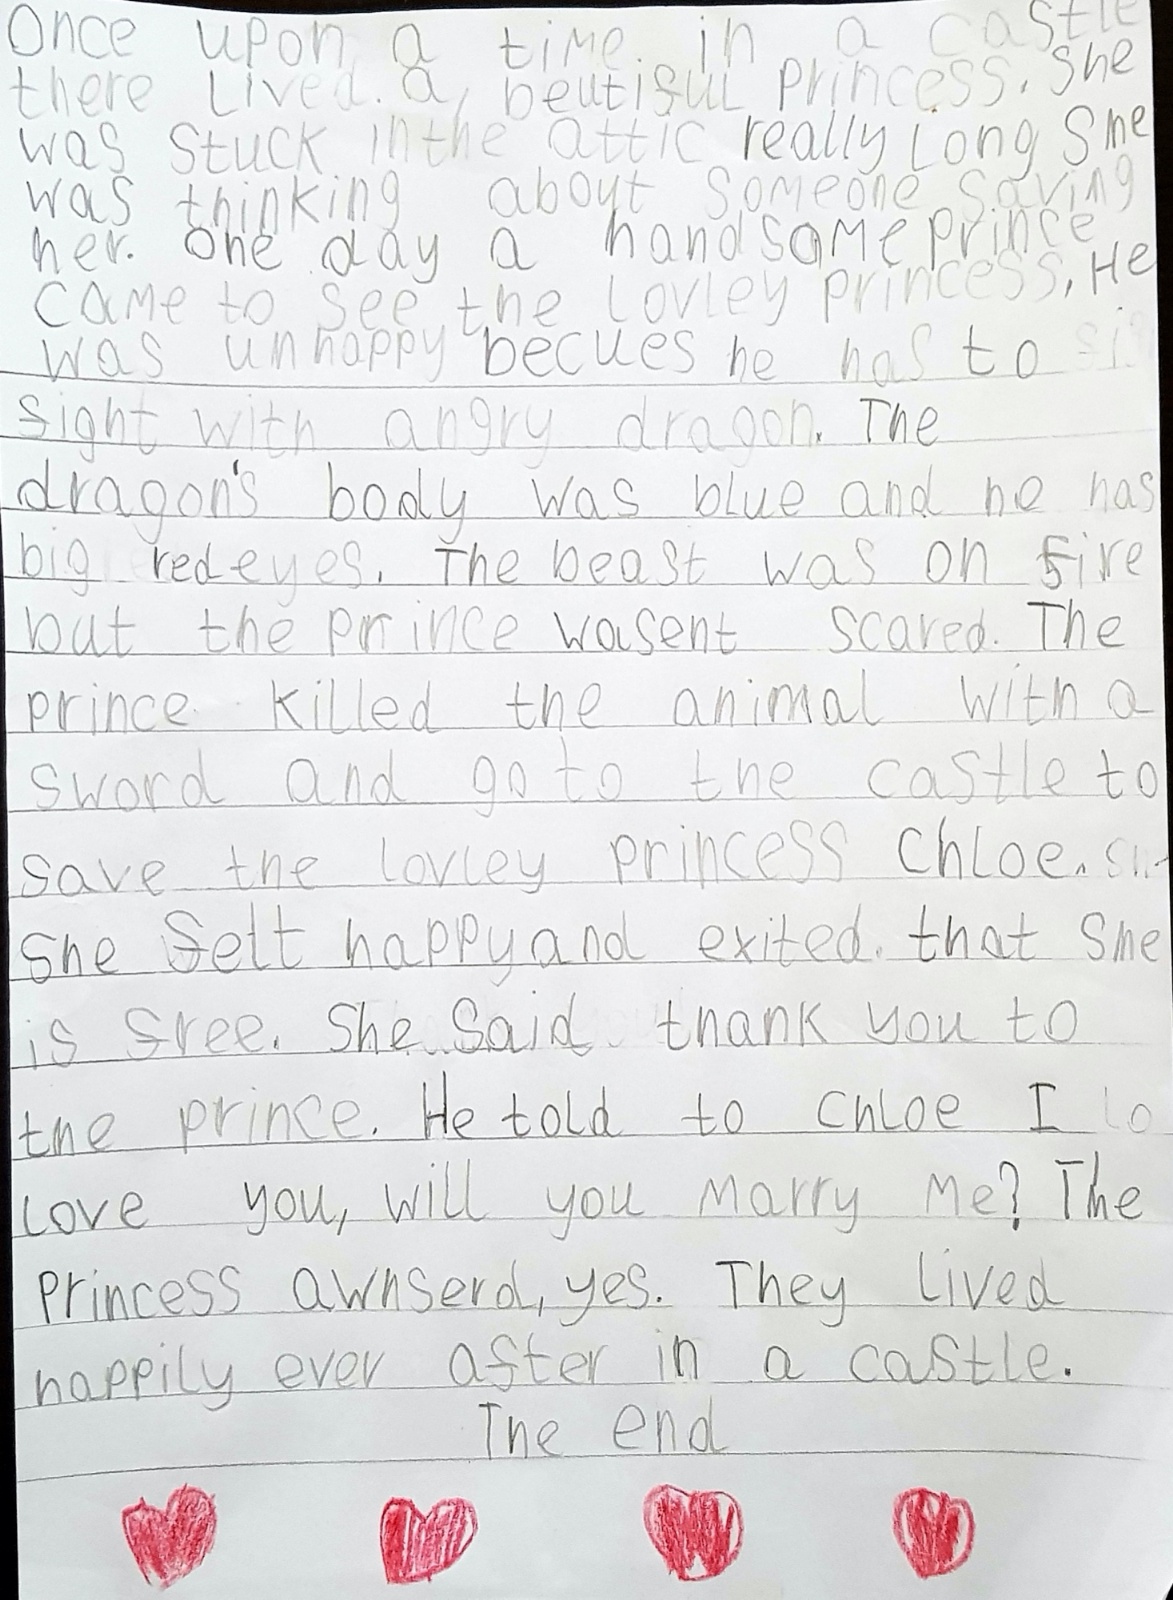 Once upon a time in a castle
there Lived a beutiful princess. She
was stuck in the attic really Long She
was thinking about someone saving
her. One day a handsome prince
came to see the Lovley princess. He
was unhappy becues he has to
fight with angry dragon. The
dragon's body was blue and he has
big red eyes. The beast was on fire
but the prince wasent scared. The
prince killed the animal with a
sword and go to the castle to
save the lovley princess Chloe.
She felt happy and exited. that She
is free. She Said thank you to
the prince. He told to Chloe I lo
Love you, will you marry me? The
Princess awnserd, yes. They lived
happily ever after in a castle.
The end